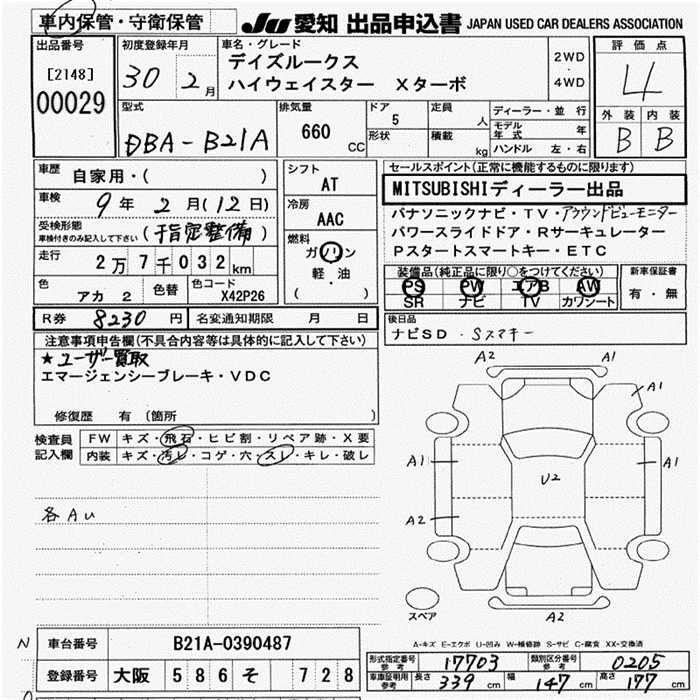 車内保管・守衛保管
JU 愛知 出品申込書 JAPAN USED CAR DEALERS ASSOCIATION
出品番号
[2148]
00029
初度登録年月
30 2月
車名・グレード
デイズルークス
ハイウェイスター Xターボ
2WD
・
4WD
評価点
4
外装 内装
B B
型式
DBA-B21A
排気量
660 CC
ドア
5
形状
定員
人
積載
kg
ディーラー・並行
モデル年式 年
ハンドル 左・右
車歴
自家用・( )
車検
9年 2月(12日)
受検形態
車検付きのみ記入して下さい
(指定整備)
走行
2万7千032km
色
アカ 2
色替
色コード
X42P26
シフト
AT
冷房
AAC
燃料
ガソリン
軽・油
( )
セールスポイント(正常に機能するものに限ります)
MITSUBISHIディーラー出品
パナソニックナビ・TV・アラウンドビューモニター
パワースライドドア・Rサーキュレーター
Pスタートスマートキー・ETC
装備品(純正品に限り○をつけてください)
PS PW エアB AW
SR ナビ TV カワシート
新車保証書
有・無
R券 8230円
名変通知期限 月 日
後日品
ナビSD・Sスマキー
注意事項申告欄(不具合内容等は具体的に記入して下さい)
★ユーザー買取
エマージェンシーブレーキ・VDC
修復歴 有 (箇所 )
検査員
記入欄
FW キズ・飛石・ヒビ割・リペア跡・X要
内装 キズ・汚レ・コゲ・穴・スレ・キレ・破レ
各AU
A2 A1
A1
A1 A1
U2
A2
スペア
A2
A-キズ E-エクボ U-凹み W-補修跡 S-サビ C-腐食 XX-交換済
N
車台番号 B21A-0390487
登録番号 大阪 586 そ 728
形式指定番号
参考
17703
類別区分番号
参考
0205
車庫証明用
参考
長さ 339cm 幅 147cm 高さ 177cm